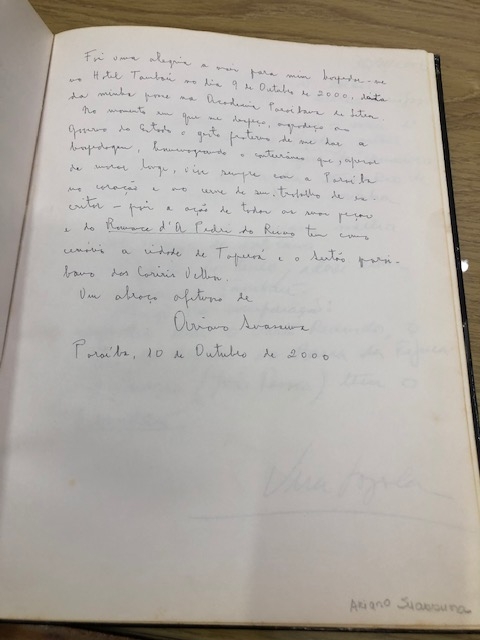 Foi uma alegria a mais para mim hospedar-me
no Hotel Tambaú no dia 9 de Outubro de 2000, data
da minha posse na Academia Paraibana de Letras.
No momento em que me despeço, agradeço ao
Governo do Estado o gesto fraterno de me dar a
hospedagem, homenageando o conterrâneo que, apesar
de morar longe, vive sempre com a Paraíba
no coração e no cerne de seu trabalho de es-
critor — pois a ação de todas as suas peças
e do Romance d'A Pedra do Reino tem como
cenário a cidade de Taperoá e o Sertão parai-
bano dos Cariris Velhos.
Um abraço afetuoso de
Ariano Suassuna
Paraíba, 10 de Outubro de 2000
Ariano Suassuna